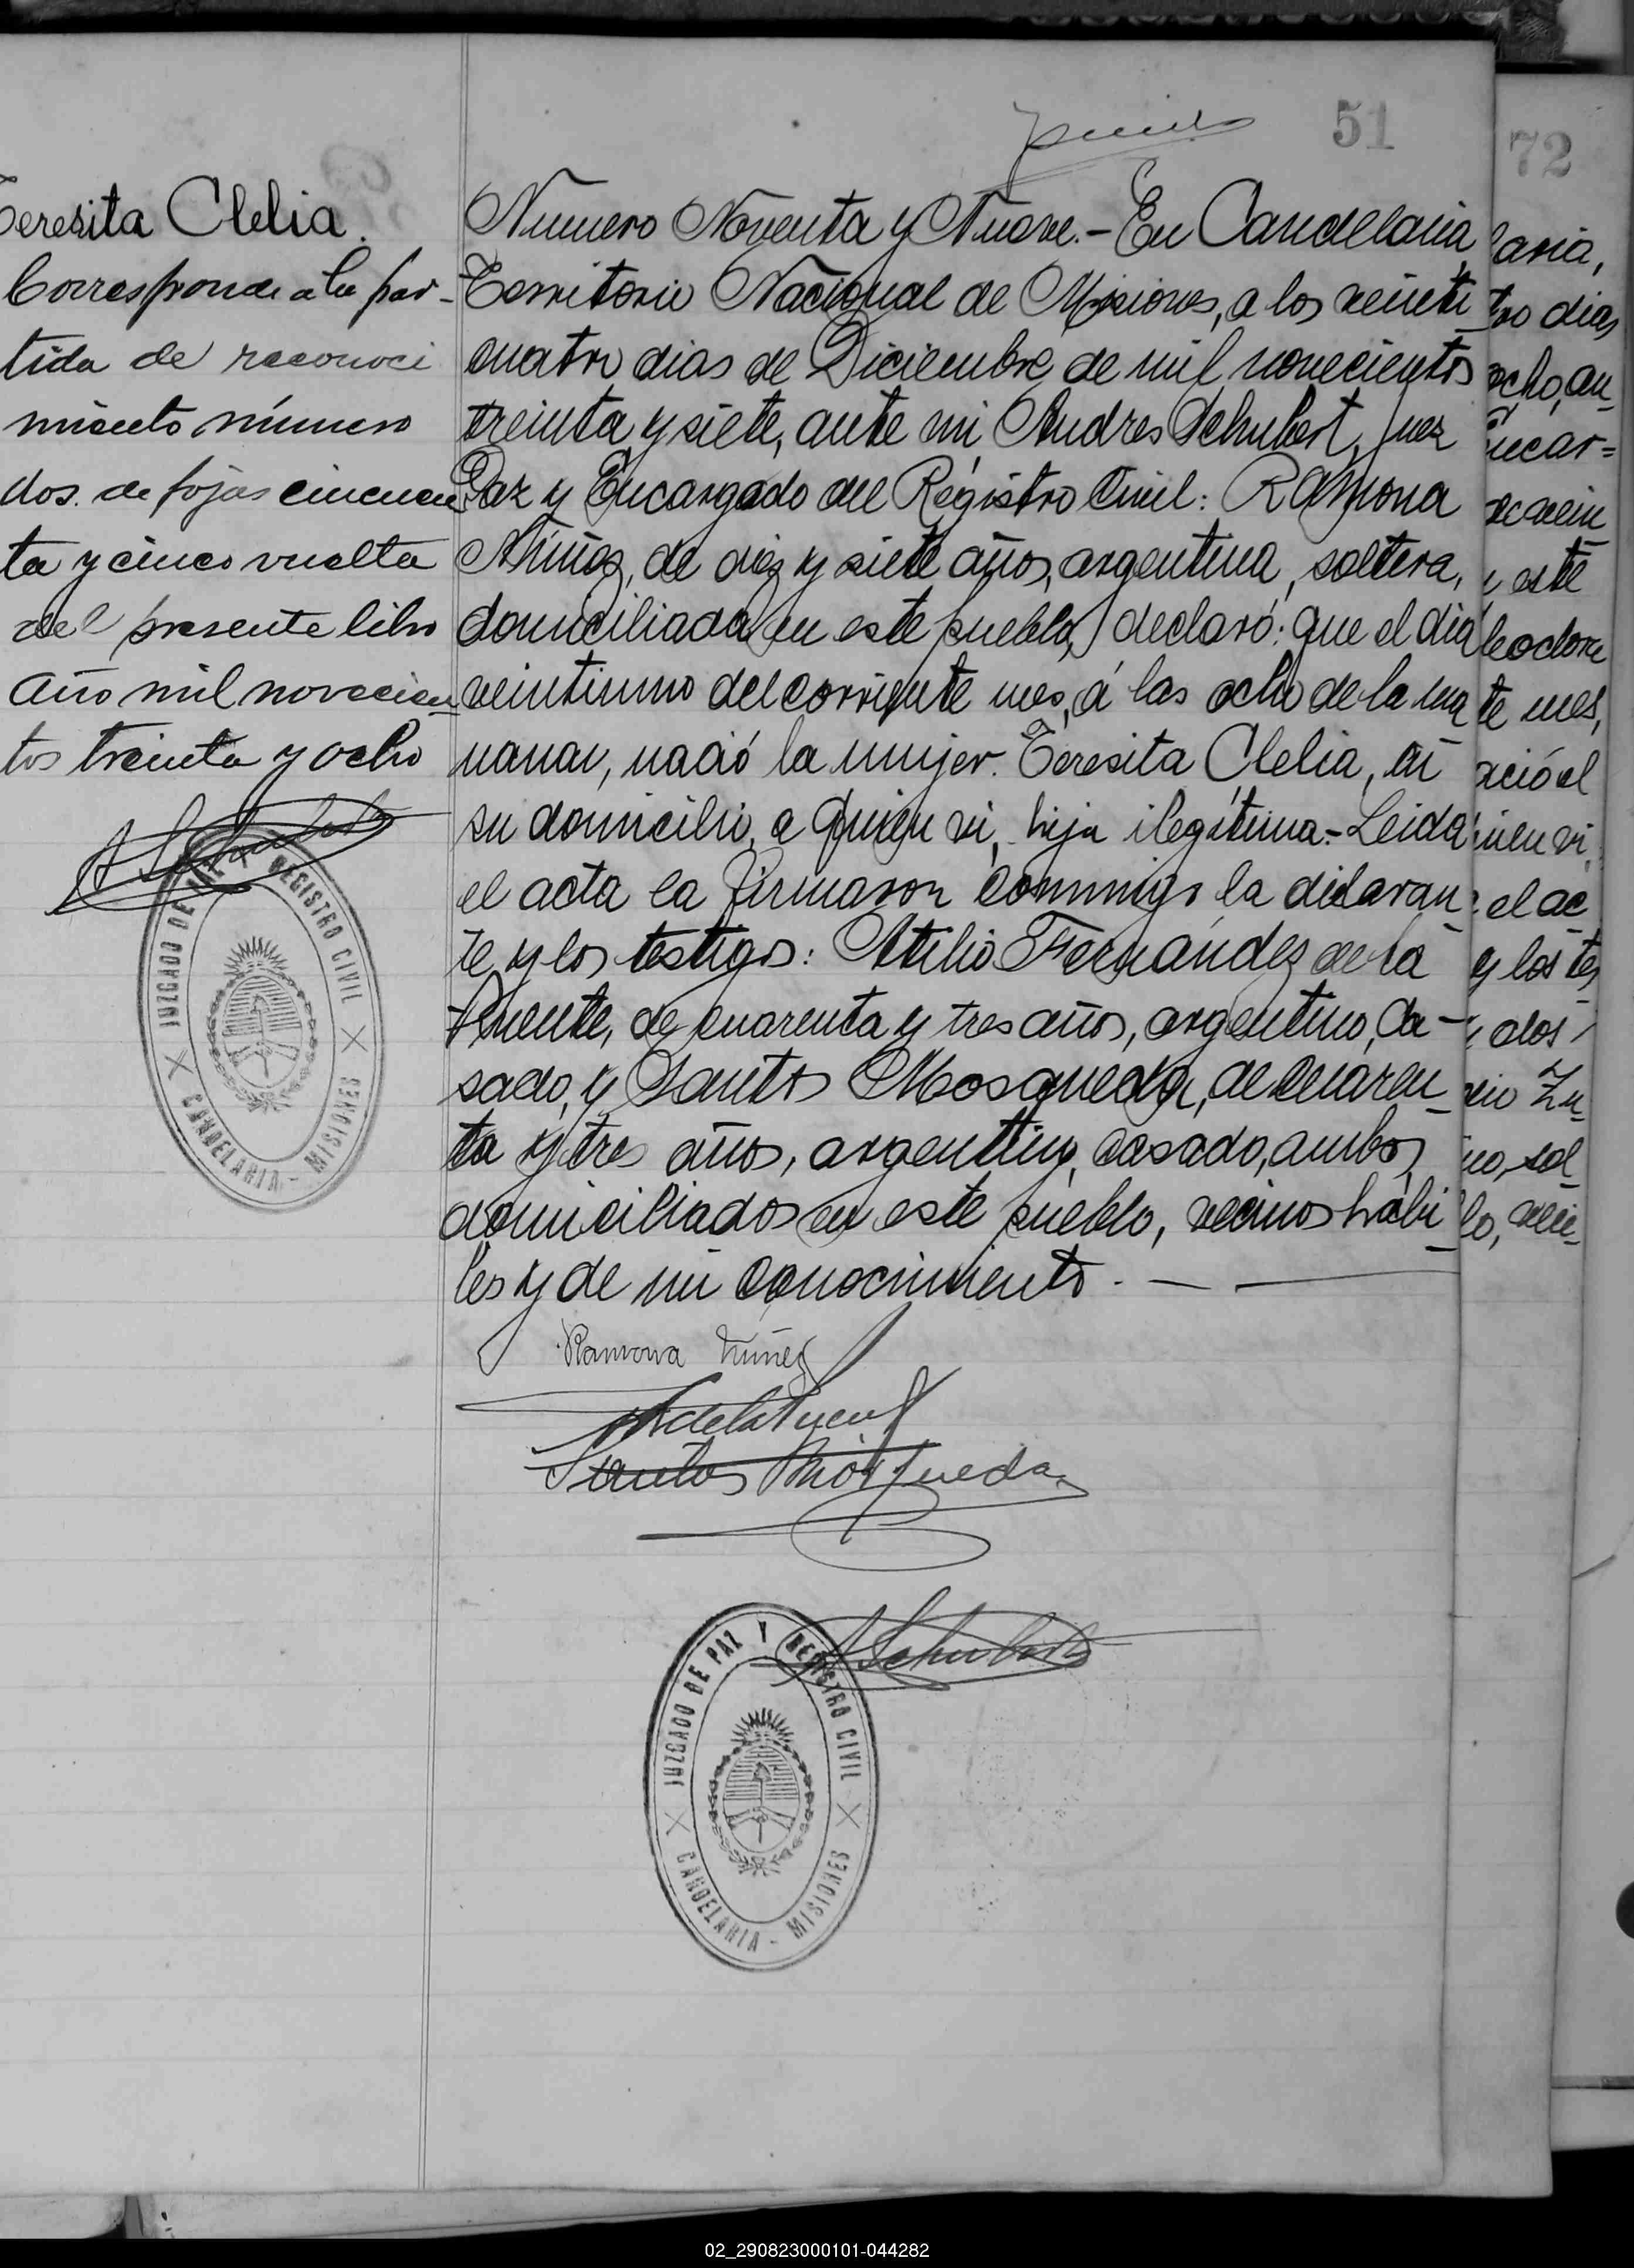 51
72
Teresita Clelia.
Corresponde a la par-
tida de reconoci
miento número
dos. de fojas cincuen
ta y cinco vuelta
del presente libro
año mil novecien
tos treinta y ocho
A Schubert
JUZGADO DE PAZ Y REGISTRO CIVIL
CANDELARIA - MISIONES
Numero Noventa y Nueve.- En Candelaria,
Territorio Nacional de Misiones, a los veinti
cuatro dias de Diciembre de mil novecientos
treinta y siete, ante mi, Andres Schubert, Juez
Paz y Encargado del Registro Civil: Ramona
Núñez, de diez y siete años, argentina, soltera,
domiciliada en este pueblo, declaró: que el dia
veintiuno del corriente mes, á las ocho de la ma
nana, nació la mujer. Teresita Clelia, en
su domicilio, a quien vi, hija ilegitima.- Leida
el acta la firmaron conmigo la declaran
te y los testigos: Atilio Fernández de la
Puente, de cuarenta y tres años, argentino, ca-
sado, y Santos Mosqueda, de cuaren
ta y tres años, argentino, casado, ambos
domiciliados en este pueblo, vecinos hábi
les y de mi conocimiento. —
Ramona Núñez
AFdelaPuente
Santos Mosqueda
A Schubert
JUZGADO DE PAZ Y REGISTRO CIVIL
CANDELARIA - MISIONES
laria,
tro dias
ocho, an
Encar=
este
te mes,
ació el
uien vi,
el ac
y los tes
dos
no, sol
lo, veci-
02_290823000101-044282